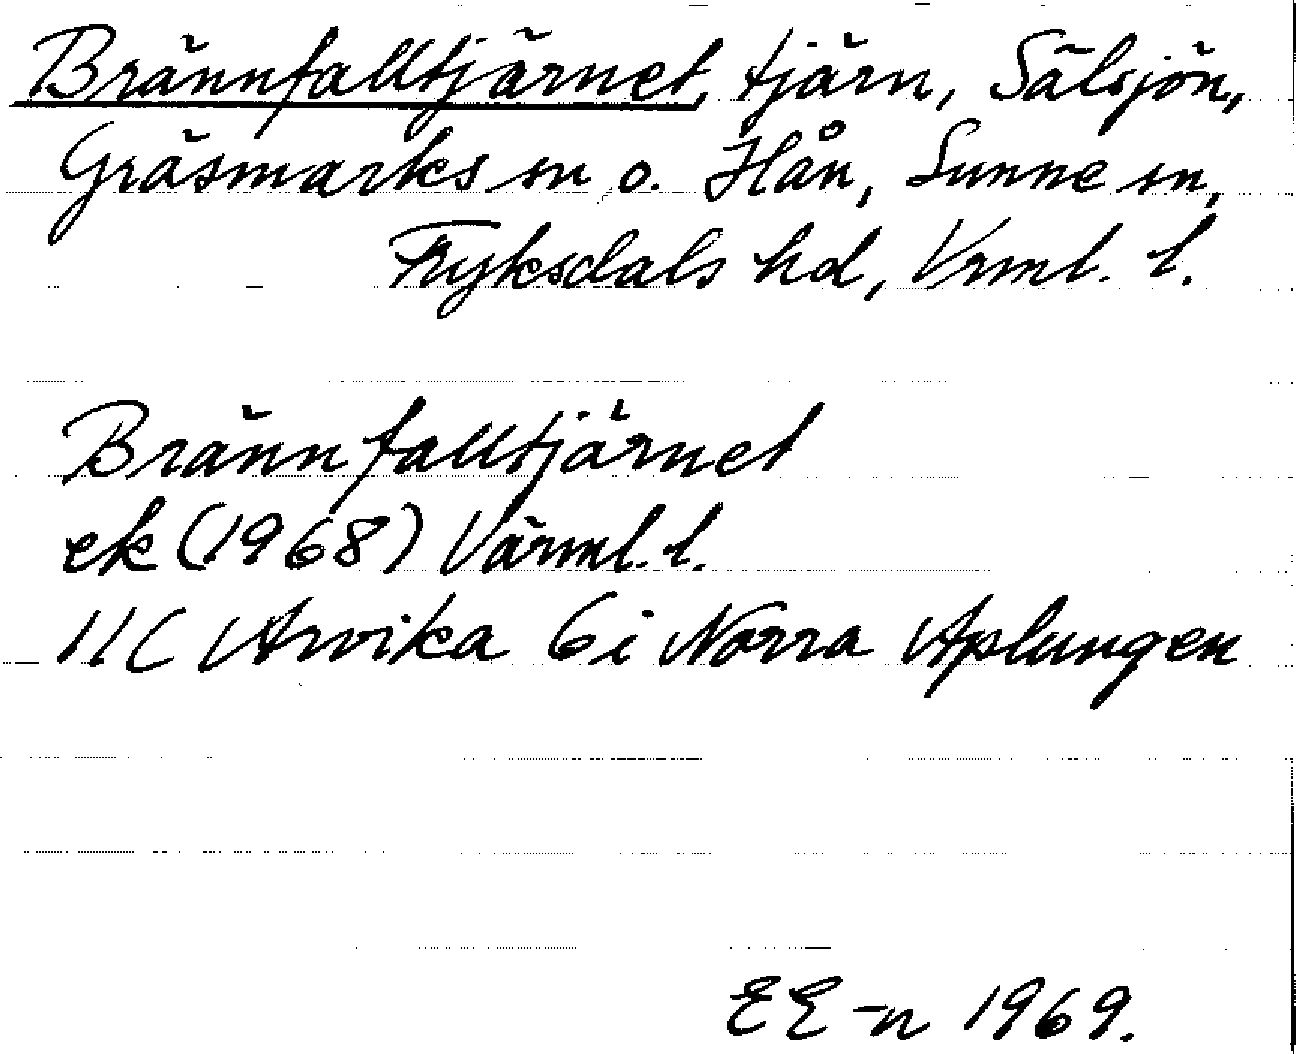 Brännfalltjärnet, tjärn, Sälsjön,
Gräsmarks sn o. Hån, Sunne sn,
Fryksdals hd, Vrml. l.
Brännfalltjärnet
ek (1968) Värml. l.
11C Arvika 6i Norra Aplungen
EE-n 1969.